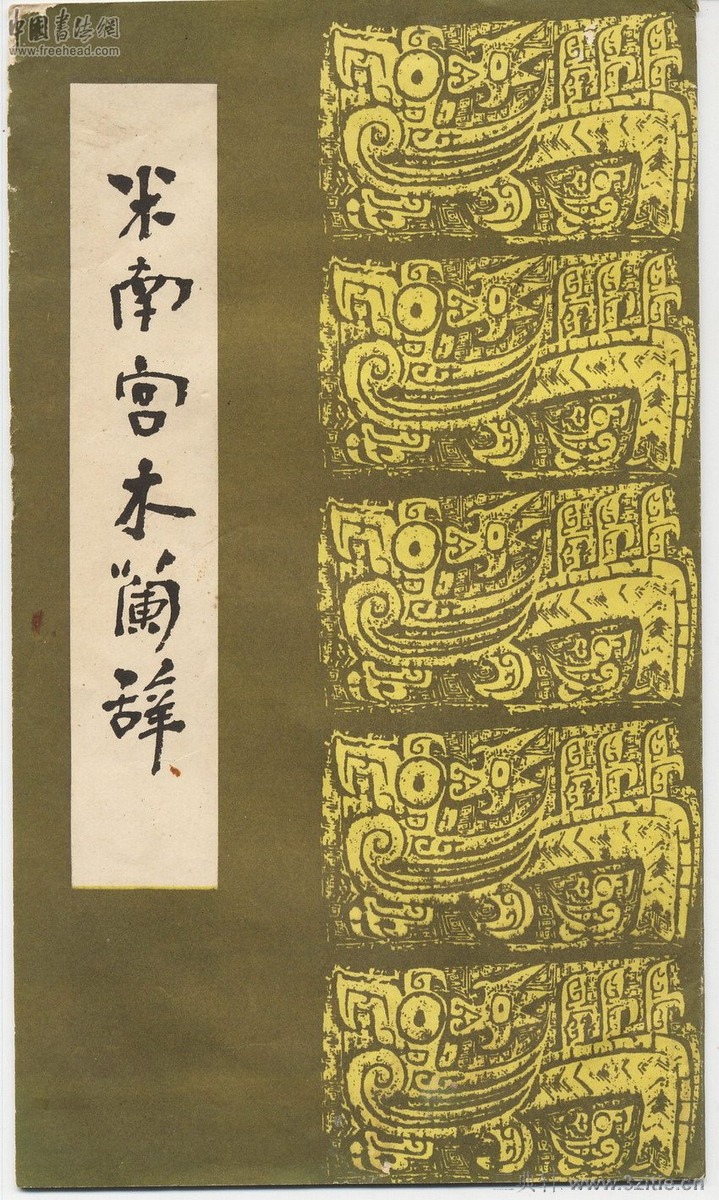 中國書法網
www.freehead.com
米南宮木蘭辞
www.szlus.cn